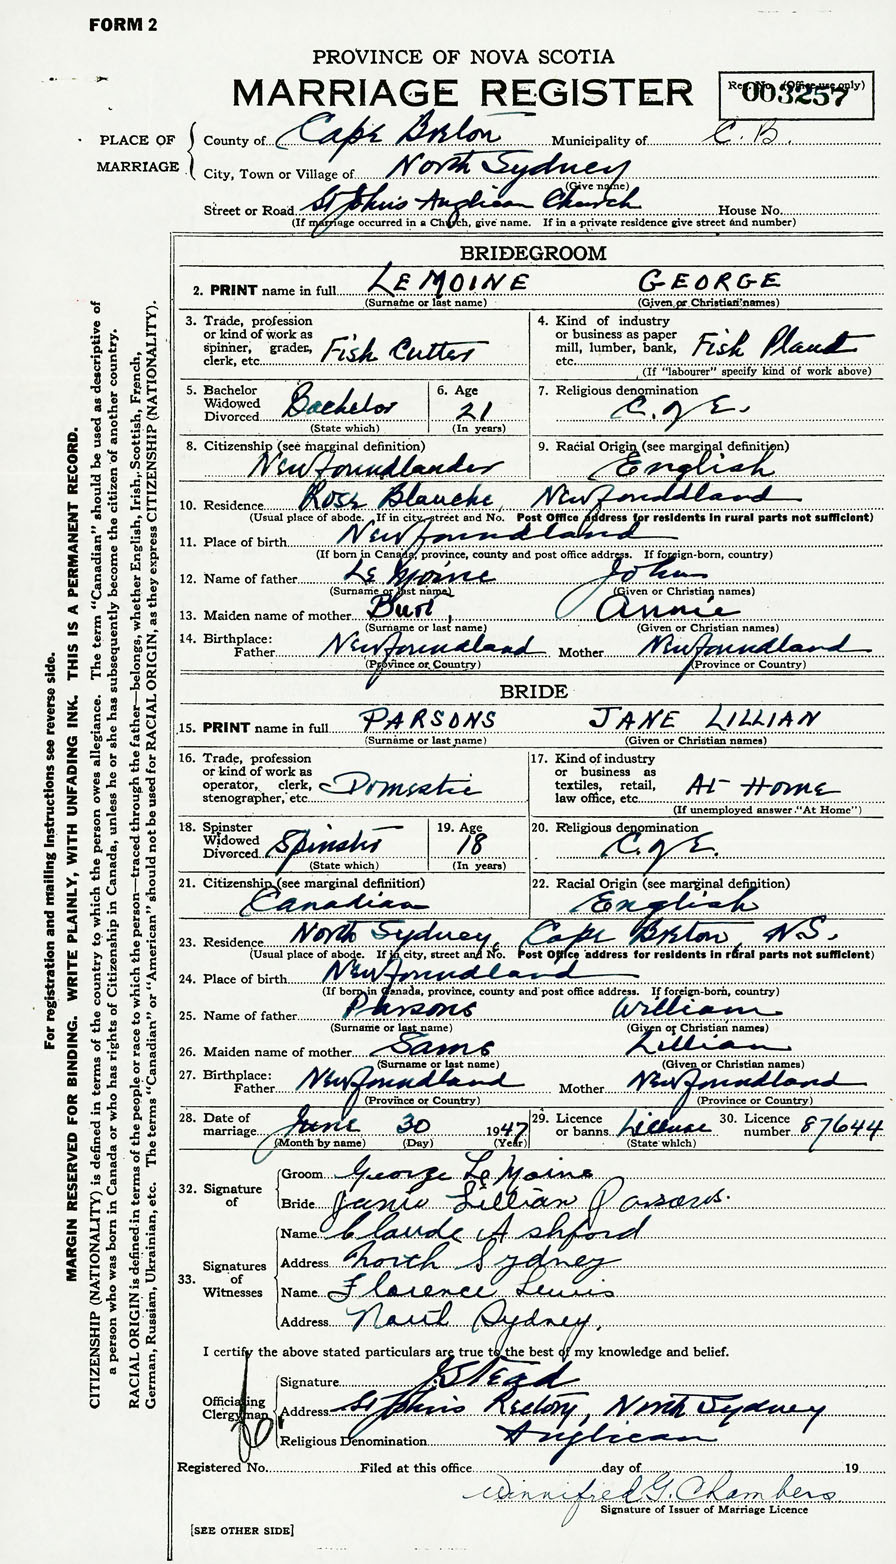 FORM 2
PROVINCE OF NOVA SCOTIA
MARRIAGE REGISTER
Reg. No. (Office use only)
003257
PLACE OF MARRIAGE
County of Cape Breton Municipality of C.B.
City, Town or Village of North Sydney
(Give name)
Street or Road St Johns Anglican Church House No.
(If marriage occurred in a Church, give name. If in a private residence give street and number)
BRIDEGROOM
2. PRINT name in full LEMOINE GEORGE
(Surname or last name) (Given or Christian names)
3. Trade, profession or kind of work as spinner, grader, clerk, etc. Fish Cutter
4. Kind of industry or business as paper mill, lumber, bank, etc. Fish Plant
(If "labourer" specify kind of work above)
5. Bachelor Widowed Divorced Bachelor
(State which)
6. Age 21
(In years)
7. Religious denomination C. of E.
8. Citizenship (see marginal definition) Newfoundlander
9. Racial Origin (see marginal definition) English
10. Residence Rose Blanche, Newfoundland
(Usual place of abode. If in city, street and No. Post Office address for residents in rural parts not sufficient)
11. Place of birth Newfoundland
(If born in Canada, province, county and post office address. If foreign-born, country)
12. Name of father Le Moine John
(Surname or last name) (Given or Christian names)
13. Maiden name of mother Annie
(Surname or last name) (Given or Christian names)
14. Birthplace:
Father Newfoundland Mother Newfoundland
(Province or Country) (Province or Country)
BRIDE
15. PRINT name in full PARSONS JANE LILLIAN
(Surname or last name) (Given or Christian names)
16. Trade, profession or kind of work as operator, clerk, stenographer, etc. Domestic
17. Kind of industry or business as textiles, retail, law office, etc. At Home
(If unemployed answer "At Home")
18. Spinster Widowed Divorced Spinster
(State which)
19. Age 18
(In years)
20. Religious denomination C. of E.
21. Citizenship (see marginal definition) Canadian
22. Racial Origin (see marginal definition) English
23. Residence North Sydney, Cape Breton, N.S.
(Usual place of abode. If in city, street and No. Post Office address for residents in rural parts not sufficient)
24. Place of birth Newfoundland
(If born in Canada, province, county and post office address. If foreign-born, country)
25. Name of father Parsons William
(Surname or last name) (Given or Christian names)
26. Maiden name of mother Sams Lillian
(Surname or last name) (Given or Christian names)
27. Birthplace:
Father Newfoundland Mother Newfoundland
(Province or Country) (Province or Country)
28. Date of marriage June 30 1947
(Month by name) (Day) (Year)
29. Licence or banns License
(State which)
30. Licence number 87644
32. Signature of
Groom George Le Moine
Bride Janie Lillian Parsons.
33. Signatures of Witnesses
Name Claude Ashford
Address North Sydney
Name Florence Lewis
Address North Sydney,
I certify the above stated particulars are true to the best of my knowledge and belief.
Officiating Clergyman
Signature Stead
Address St Johns Rectory, North Sydney
Religious Denomination Anglican
Registered No. Filed at this office day of 19
Winnifred G. Chambers
Signature of Issuer of Marriage Licence
[SEE OTHER SIDE]
For registration and mailing instructions see reverse side.
MARGIN RESERVED FOR BINDING. WRITE PLAINLY, WITH UNFADING INK. THIS IS A PERMANENT RECORD.
CITIZENSHIP (NATIONALITY) is defined in terms of the country to which the person owes allegiance. The term "Canadian" should be used as descriptive of
a person who was born in Canada or who has rights of Citizenship in Canada, unless he or she has subsequently become the citizen of another country.
RACIAL ORIGIN is defined in terms of the people or race to which the person—traced through the father—belongs, whether English, Irish, Scottish, French,
German, Russian, Ukrainian, etc. The terms "Canadian" or "American" should not be used for RACIAL ORIGIN, as they express CITIZENSHIP (NATIONALITY).